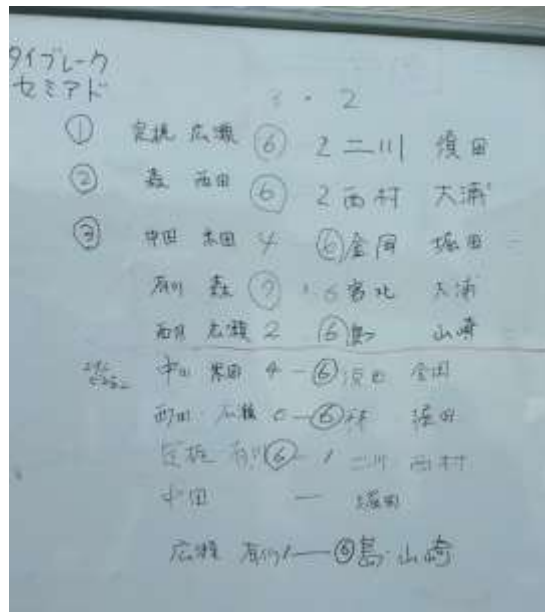 タイブレーク
セミアド
3 - 2
① 定梶 広瀬 ⑥ 2 二川 須田
② 森 西田 ⑥ 2 西村 大浦
③ 中田 米田 4 ⑥ 金岡 堀田
有川 森 ⑦ 6 宮北 大浦
西田 広瀬 2 ⑥ 島 山崎
中田 米田 4 - ⑥ 須田 金岡
西田 広瀬 0 - ⑥ 堀田
定梶 有川 ⑥ - 1 二川 西村
中田 - 堀田
広瀬 有川 1 - ⑥ 島・山崎